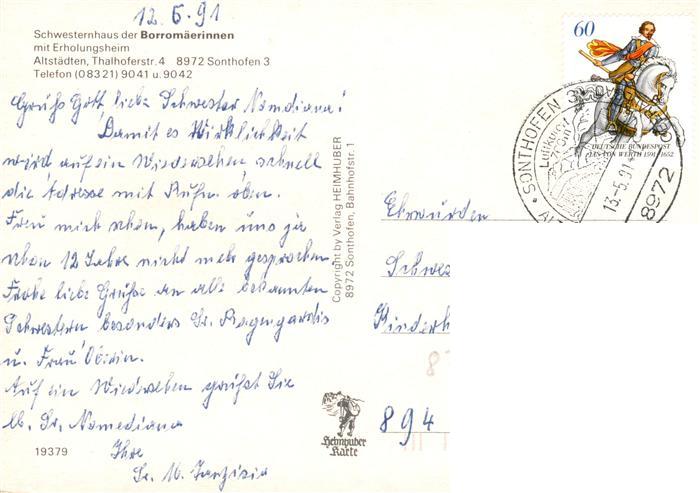 12.5.91
Schwesternhaus der Borromäerinnen
mit Erholungsheim
Altstädten, Thalhoferstr. 4   8972 Sonthofen 3
Telefon (0 83 21) 90 41 u. 90 42
Grüß Gott liebe Schwester Nomediana!
Damit es Wirklichkeit
wird auf ein Wiedersehen schnell
die Adresse mit Rufn. oben.
Freu mich schon, haben uns ja
schon 12 Jahre nicht mehr gesprochen
Frohe liebe Grüße an alle bekannten
Schwestern besonders Sr.
u. Frau
Auf ein Wiedersehen grüßt Sie
lb. Sr. Nomediana
Ihre
Sr. M.
19379
Copyright by Verlag HEIMHUBER
8972 Sonthofen, Bahnhofstr. 1
Heimhuber
Karte
60
DEUTSCHE BUNDESPOST
JAN VON WERTH 1591-1652
SONTHOFEN 3
Luftkurort
13.-5.91
8972
Ehrwürden
Schwes
Kinderh
894